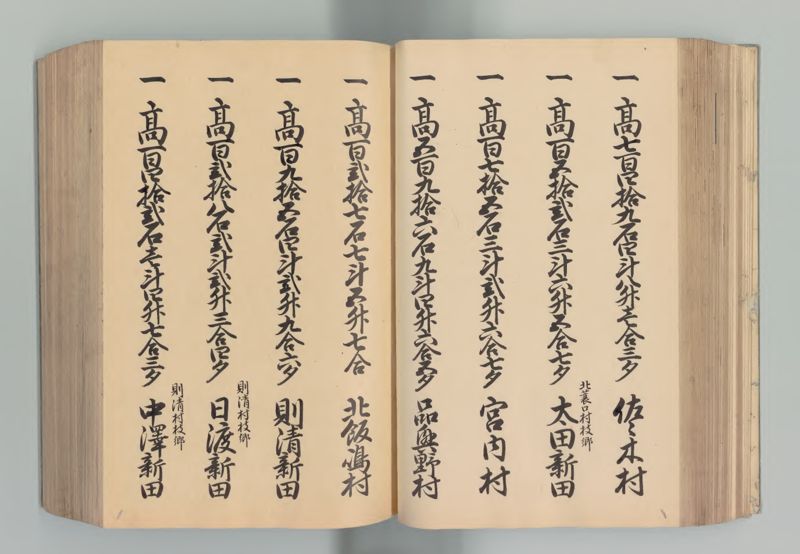 一 髙七百四拾九石四斗八升壱合三夕 佐々木村
一 髙百五拾弐石三斗六升五合七夕 北蓑口村枝郷 太田新田
一 髙百七拾五石三斗弐升六合七夕 宮内村
一 髙五百九拾六石九斗四升六合五夕 品塩野村
一 髙百弐拾七石七斗五升七合 北飯嶋村
一 髙百九拾五石四斗弐升九合六夕 則清新田
一 髙百弐拾八石弐斗弐升三合四夕 則清村枝郷 日渡新田
一 髙百四拾弐石壱斗四升七合三夕 則清村枝郷 中澤新田